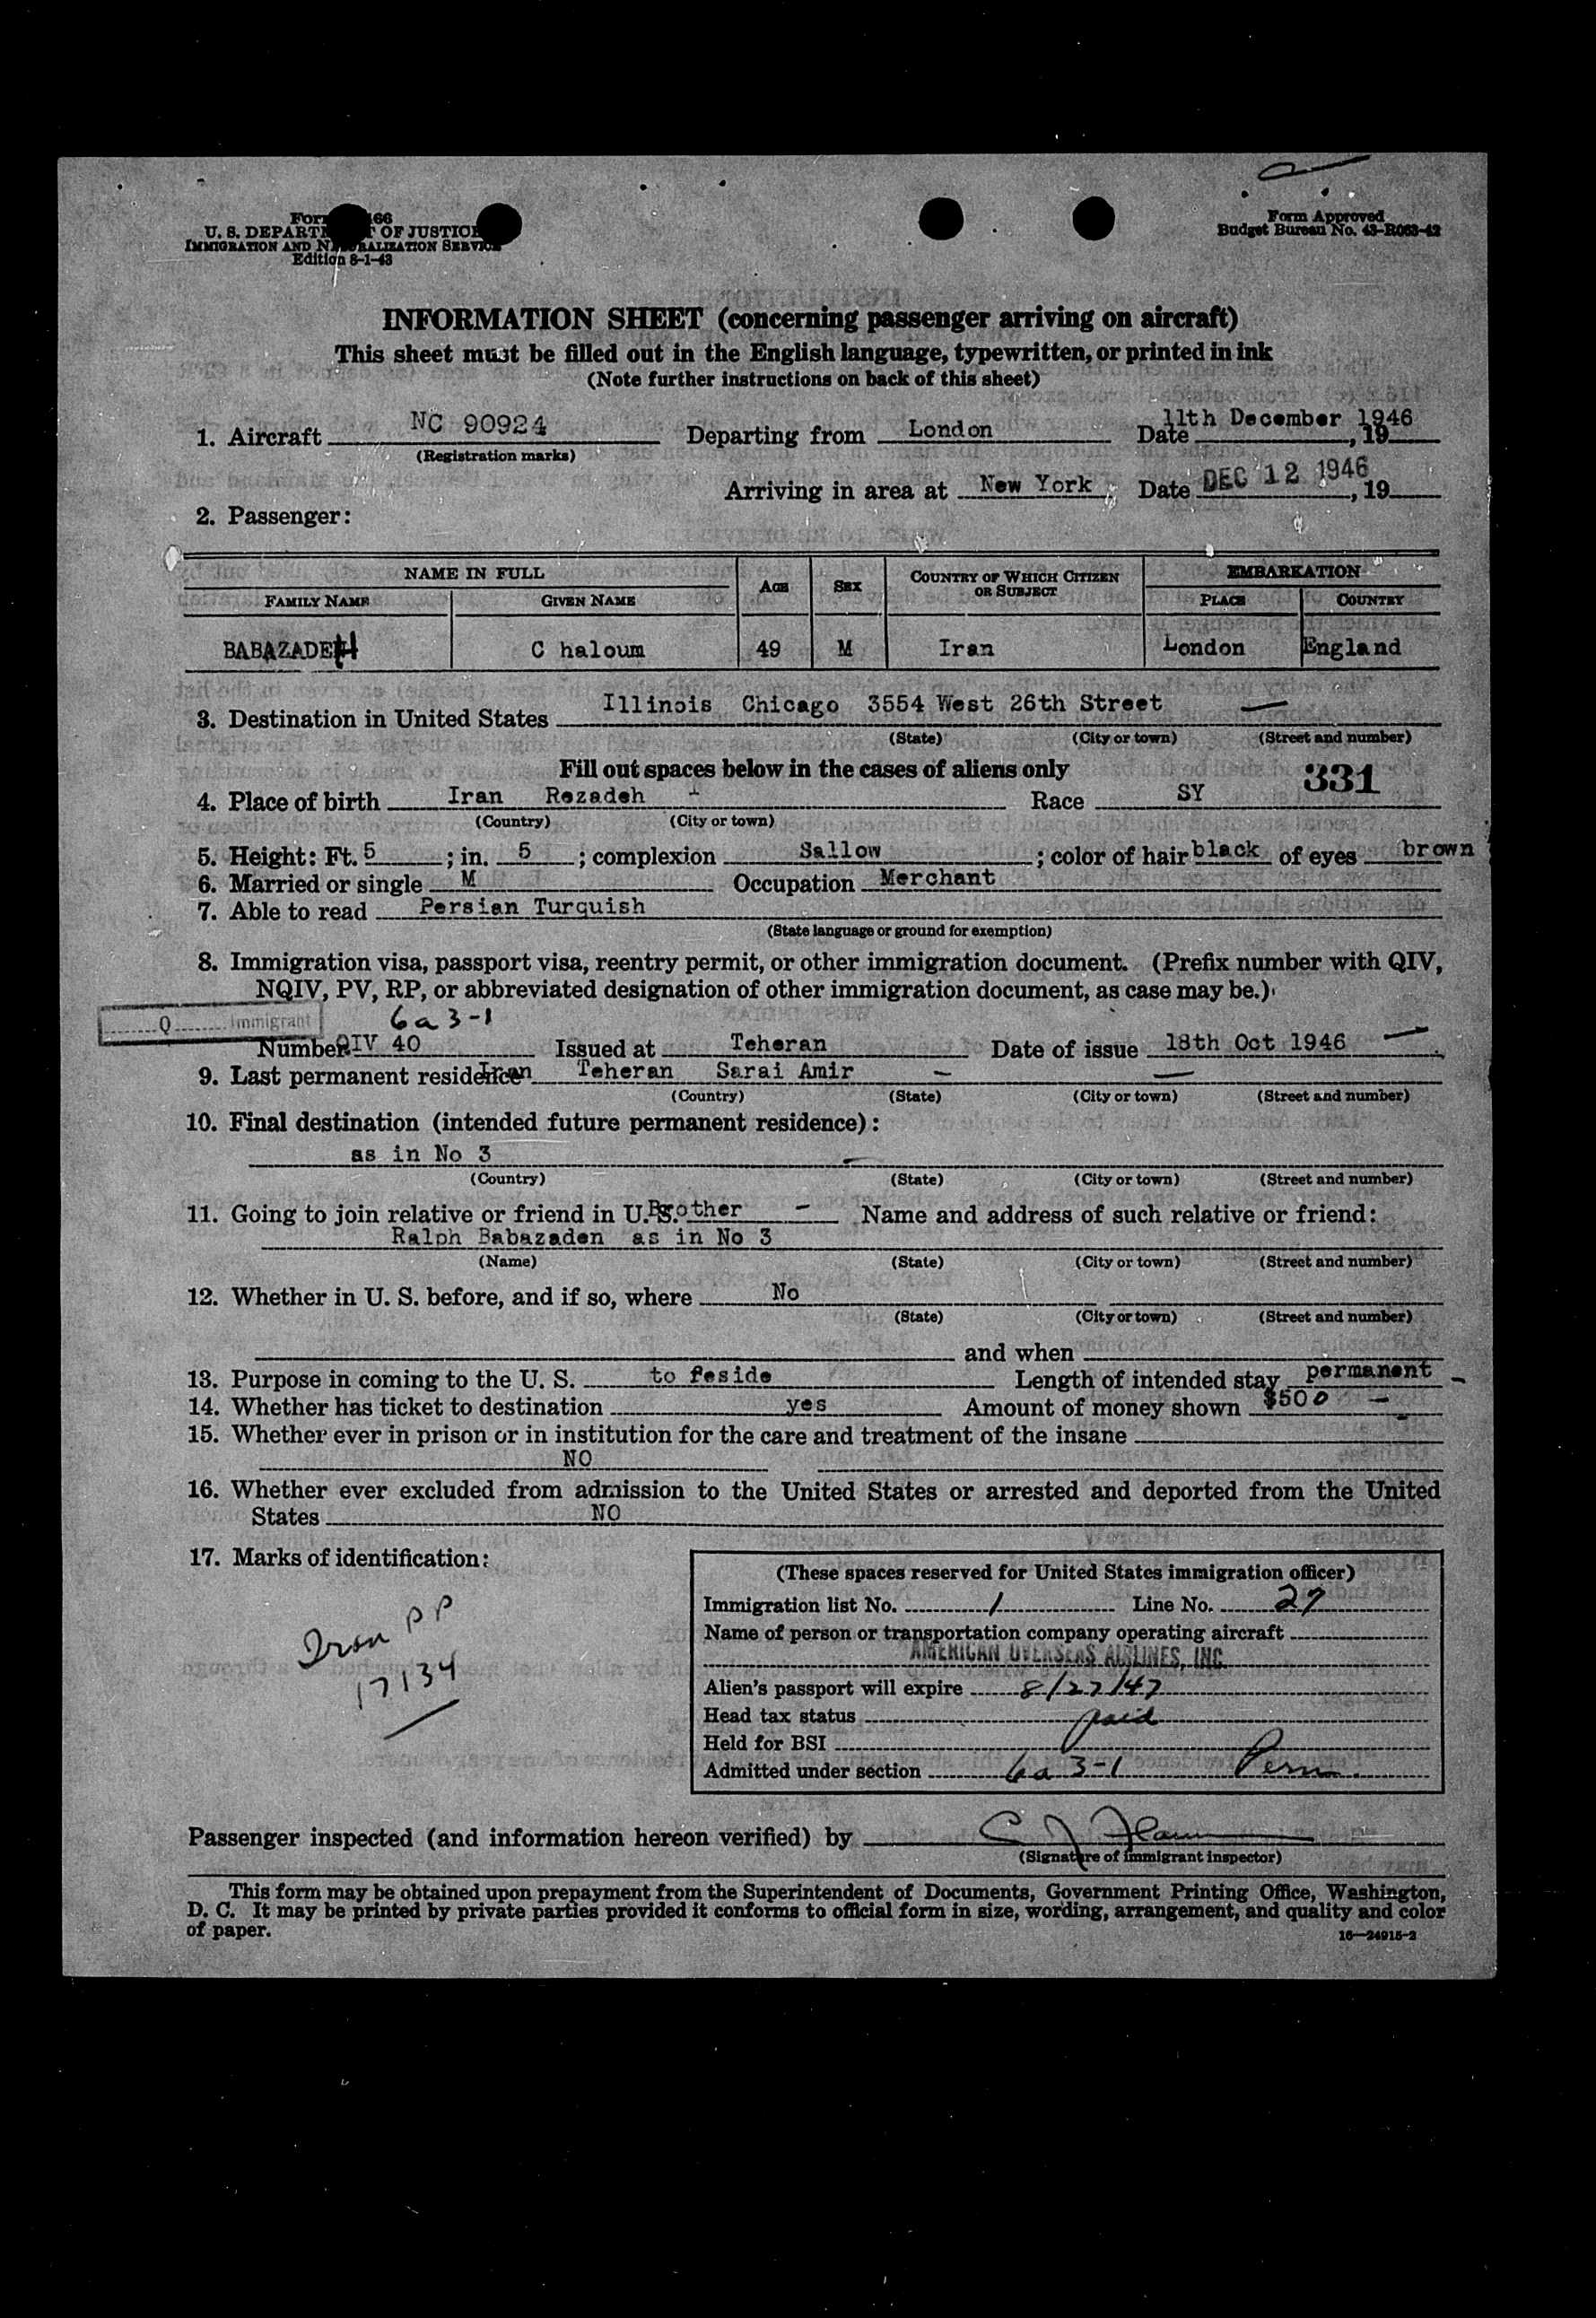 Form 466
U. S. DEPARTMENT OF JUSTICE
IMMIGRATION AND NATURALIZATION SERVICE
Edition 8-1-43
Form Approved
Budget Bureau No. 43-R063-42
INFORMATION SHEET (concerning passenger arriving on aircraft)
This sheet must be filled out in the English language, typewritten, or printed in ink
(Note further instructions on back of this sheet)
1. Aircraft NC 90924 Departing from London Date 11th December 1946, 19
(Registration marks)
Arriving in area at New York, Date DEC 12 1946, 19
2. Passenger:
NAME IN FULL AGE SEX COUNTRY OF WHICH CITIZEN OR SUBJECT EMBARKATION
FAMILY NAME GIVEN NAME PLACE COUNTRY
BABAZADEH C haloum 49 M Iran London England
3. Destination in United States Illinois Chicago 3554 West 26th Street
(State) (City or town) (Street and number)
Fill out spaces below in the cases of aliens only 331
4. Place of birth Iran Rezadeh Race SY
(Country) (City or town)
5. Height: Ft. 5; in. 5; complexion Sallow; color of hair black of eyes brown
6. Married or single M Occupation Merchant
7. Able to read Persian Turquish
(State language or ground for exemption)
8. Immigration visa, passport visa, reentry permit, or other immigration document. (Prefix number with QIV,
NQIV, PV, RP, or abbreviated designation of other immigration document, as case may be.)
Q Immigrant 6a3-1
Number QIV 40 Issued at Teheran Date of issue 18th Oct 1946
9. Last permanent residence Iran Teheran Sarai Amir
(Country) (State) (City or town) (Street and number)
10. Final destination (intended future permanent residence):
as in No 3
(Country) (State) (City or town) (Street and number)
11. Going to join relative or friend in U. S. Brother - Name and address of such relative or friend:
Ralph Babazaden as in No 3
(Name) (State) (City or town) (Street and number)
12. Whether in U. S. before, and if so, where No
(State) (City or town) (Street and number)
and when
13. Purpose in coming to the U. S. to feside Length of intended stay permanent -
14. Whether has ticket to destination yes Amount of money shown $500 -
15. Whether ever in prison or in institution for the care and treatment of the insane
NO
16. Whether ever excluded from admission to the United States or arrested and deported from the United
States NO
17. Marks of identification:
Iran PP
17134
(These spaces reserved for United States immigration officer)
Immigration list No. 1 Line No. 27
Name of person or transportation company operating aircraft
AMERICAN OVERSEAS AIRLINES, INC.
Alien's passport will expire 8/27/47
Head tax status paid
Held for BSI
Admitted under section 6a 3-1 Perm.
Passenger inspected (and information hereon verified) by C J
(Signature of immigrant inspector)
This form may be obtained upon prepayment from the Superintendent of Documents, Government Printing Office, Washington,
D. C. It may be printed by private parties provided it conforms to official form in size, wording, arrangement, and quality and color
of paper.
16—24915-2